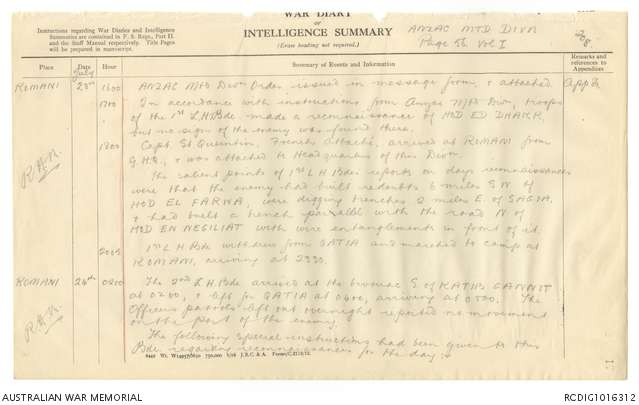 WAR DIARY
or
INTELLIGENCE SUMMARY
(Erase heading not required.)
ANZAC MTD DIVN
Page 56 Vol I
Instructions regarding War Diaries and Intelligence
Summaries are contained in F. S. Regs., Part II.
and the Staff Manual respectively. Title Pages
will be prepared in manuscript.
Place
Date
July
Hour
Summary of Events and Information
Remarks and
references to
Appendices
ROMANI 23rd 1600 ANZAC Mtd Divn Order issued in message form, & attached. App
1700 In accordance with instructions from Anzac Mtd Divn, troops
of the 1st L.H. Bde made a reconnaissance of HOD ED DHAKR,
but no sign of the enemy was found there.
1800 Capt. St Quentin, French attaché, arrived at ROMANI from
G.H.Q., & was attached to Headquarters of this Divn.
The salient points of 1st L H Bdes reports on days reconnaissances
were that the enemy had built redoubts 6 miles SW of
HOD EL FARWA, were digging trenches 2 miles E. of SAGIA,
& had built a trench parallel with the road N of
HOD EN NEGILIAT with wire entanglements in front of it.
1st L H Bde withdrew from QATIA and marched to camp at
ROMANI, arriving at 2330.
ROMANI 24th 0200 The 2nd L H Bde arrived at the bivouac S of KATIB GANNIT
at 0200, & left for QATIA at 0400, arriving at 0500. The
Officers patrols left out overnight reported no movement
on the part of the enemy.
The following special instructions had been given to this
Bde regarding reconnaissances for the day:-
AUSTRALIAN WAR MEMORIAL
RCDIG1016312